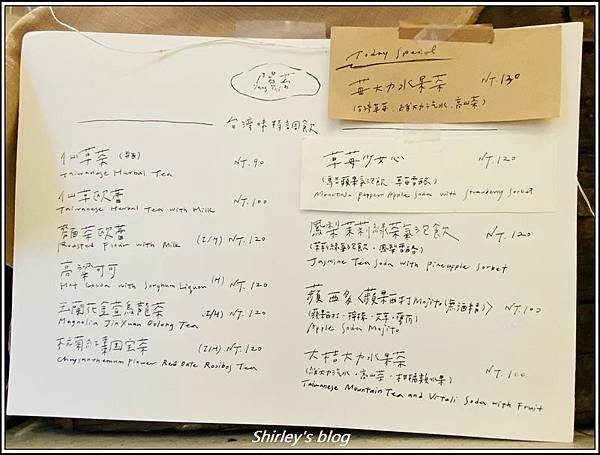 Today Special
莓大力水果茶 NT.130
(台灣草莓、維大力汽水、高山茶)
台灣味特調飲
仙草茶 NT.90
Taiwanese Herbal Tea
仙草歐蕾 NT.100
Taiwanese Herbal Tea with Milk
麵茶歐蕾 (I/H) NT.120
Roasted Flour with Milk
高粱可可 (H) NT.120
Hot Cocoa with Sorghum Liquor
玉蘭花金萱烏龍茶 (I/H) NT.120
Magnolia JinXuan Oolong Tea
杭菊紅棗國宝茶 (I/H) NT.120
Chrysanthemum Flower Red Date Rooibos Tea
草莓少女心 NT.120
Mountain Pepper Apple Soda with Strawberry Sorbet
鳳梨茉莉綠茶氣泡飲 NT.120
(茉莉綠氣泡飲、鳳梨雪酪)
Jasmine Tea Soda with pineapple sorbet
蘋西多〈蘋果西打Mojito(無酒精)〉 NT.100
(蘋果西打、檸檬、大羊、薄荷)
Apple Soda Mojito
大桔大力水果茶 NT.100
(維大力汽水、高山茶、柑橘類水果)
Taiwanese Mountain Tea and Vitali Soda with Fruit
Shirley's blog